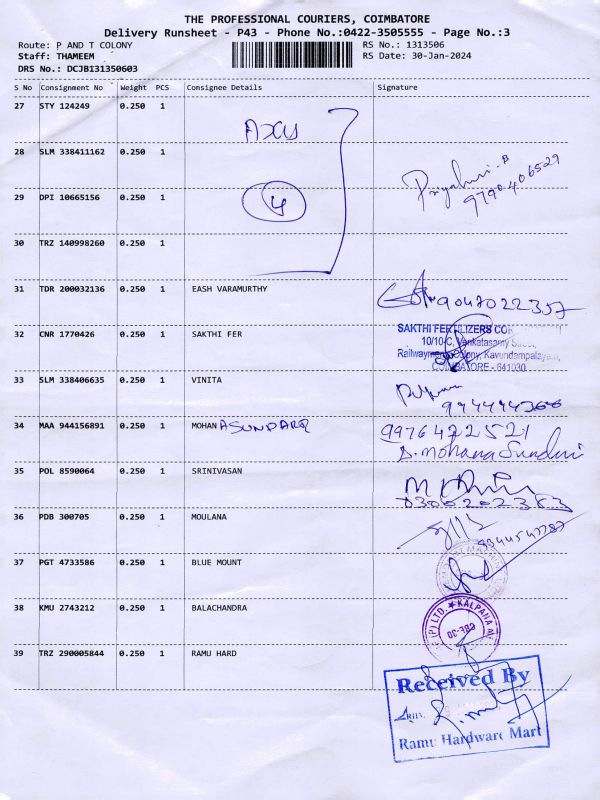 THE PROFESSIONAL COURIERS, COIMBATORE
Delivery Runsheet - P43 - Phone No.:0422-3505555 - Page No.:3
Route: P AND T COLONY
Staff: THAMEEM
DRS No.: DCJB131350603
RS No.: 1313506
RS Date: 30-Jan-2024
S No Consignment No Weight PCS Consignee Details Signature
27 STY 124249 0.250 1
28 SLM 338411162 0.250 1
9790406529
29 DPI 10665156 0.250 1
4
30 TRZ 140998260 0.250 1
31 TDR 200032136 0.250 1 EASH VARAMURTHY
9047022357
32 CNR 1770426 0.250 1 SAKTHI FER
SAKTHI FERTILIZERS COR
10/10-C, Venkatasamy Street,
Railwaymens Colony, Kavundampalayam,
COIMBATORE - 641030
33 SLM 338406635 0.250 1 VINITA
34 MAA 944156891 0.250 1 MOHANASUNDARI
9976472521
S. Mohana Sundari
35 POL 8590064 0.250 1 SRINIVASAN
36 PDB 300705 0.250 1 MOULANA
37 PGT 4733586 0.250 1 BLUE MOUNT
38 KMU 2743212 0.250 1 BALACHANDRA
(P) LTD. ★ KALPANA
39 TRZ 290005844 0.250 1 RAMU HARD
Received By
Ramu Hardware Mart